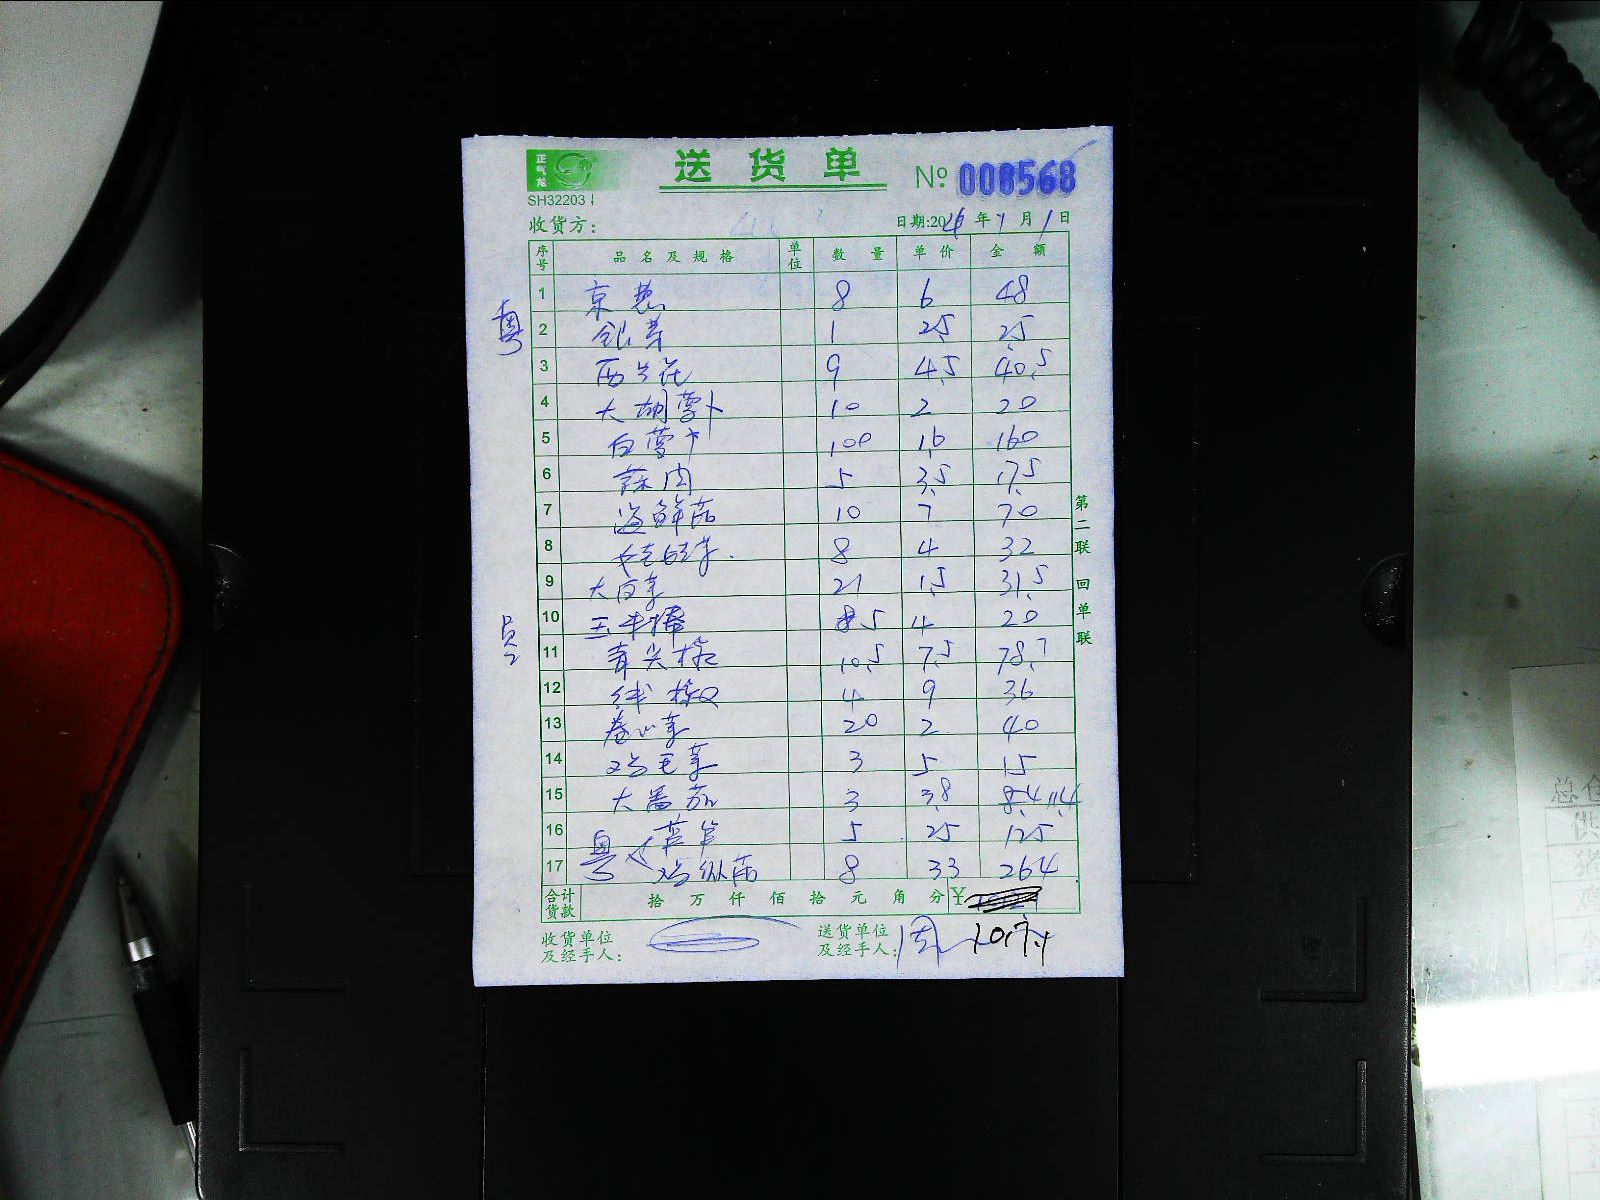 正气龙
送货单
№ 008568
SH32203
收货方：
日期:20 年 1 月 1 日
序号 品名及规格 单位 数量 单价 金额
1 京葱 8 6 48
2 银芽 1 2.5 2.5
3 西兰花 9 4.5 40.5
4 大胡萝卜 10 2 20
5 白萝卜 100 1.6 160
6 5 3.5 17.5
7 海鲜菇 10 7 70
8 8 4 32
9 大白菜 21 1.5 31.5
10 玉米棒 5 4 20
11 青尖椒 10.5 7.5 78.7
12 4 9 36
13 卷心菜 20 2 40
14 鸡毛菜 3 5 15
15 大番茄 3 3.8 8.4 11.4
16 芦笋 5 25 125
17 鸡枞菇 8 33 264
粤
员
粤
合计货款 拾 万 仟 佰 拾 元 角 分 ¥
1017.1
收货单位及经手人：
送货单位及经手人：
第二联 回单联
总仓
供
猪
鸡